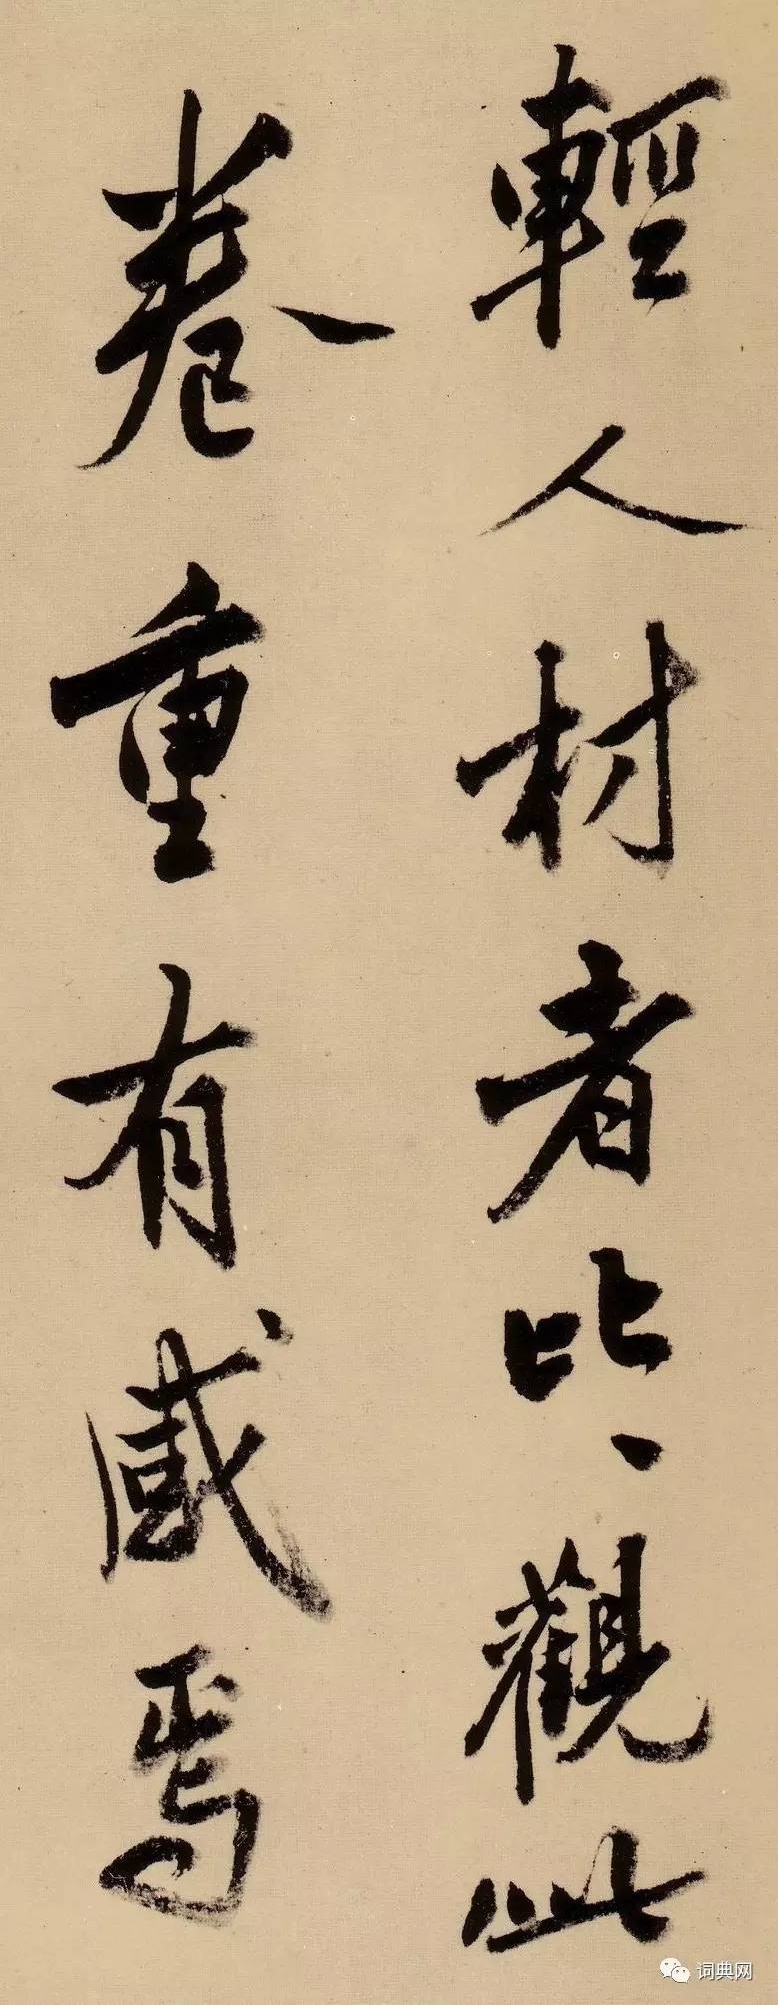 輕人材者比比觀此
卷重有感焉
词典网